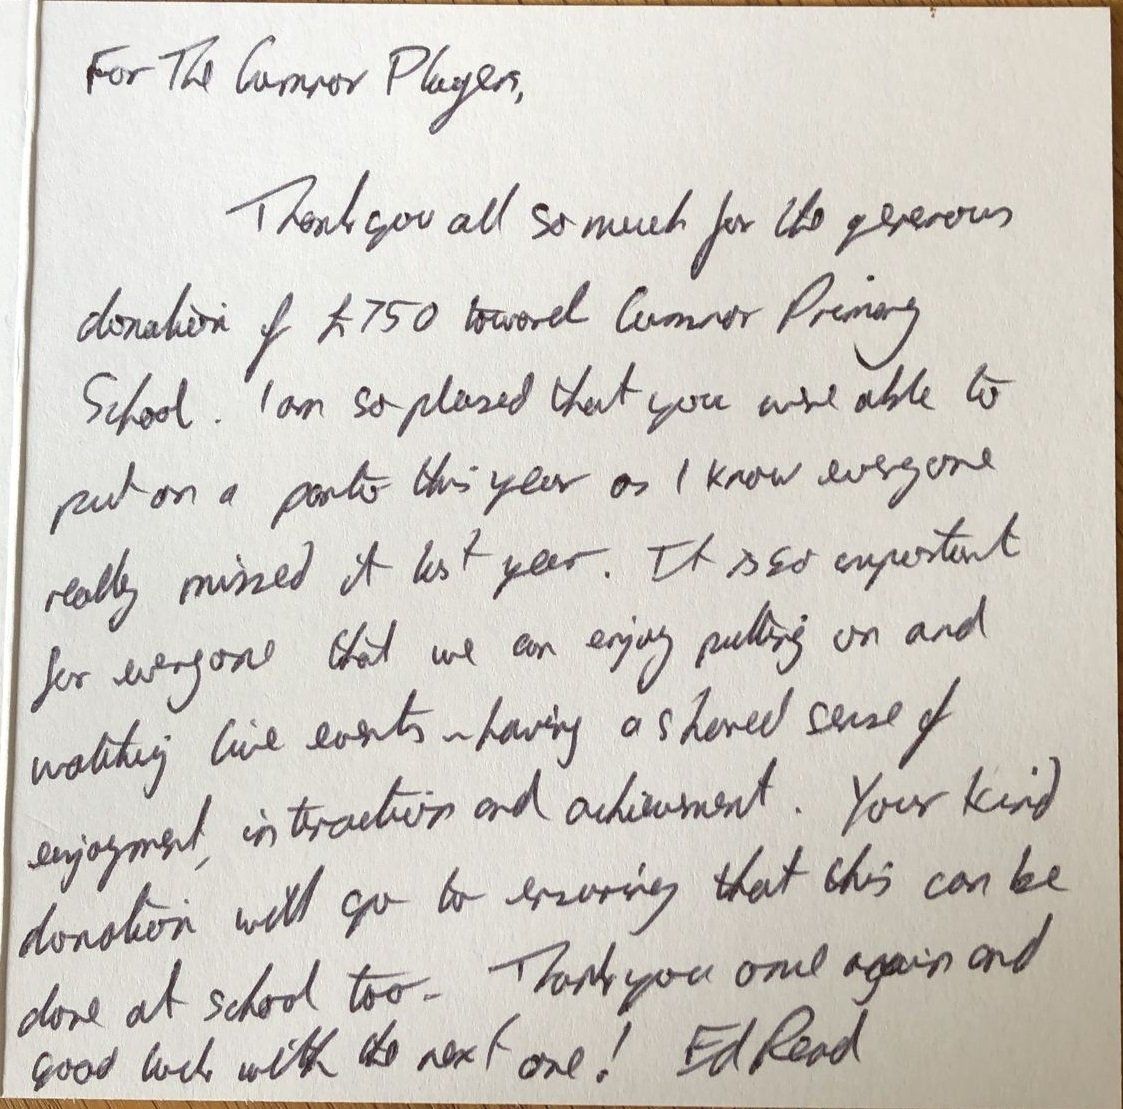 For The Cumnor Players,
Thank you all so much for the generous
donation of £750 toward Cumnor Primary
School. I am so pleased that you were able to
put on a panto this year as I know everyone
really missed it last year. It is so important
for everyone that we can enjoy putting on and
watching live events - having a shared sense of
enjoyment, interaction and achievement. Your kind
donation will go to ensuring that this can be
done at school too. Thank you once again and
good luck with the next one! Ed Read